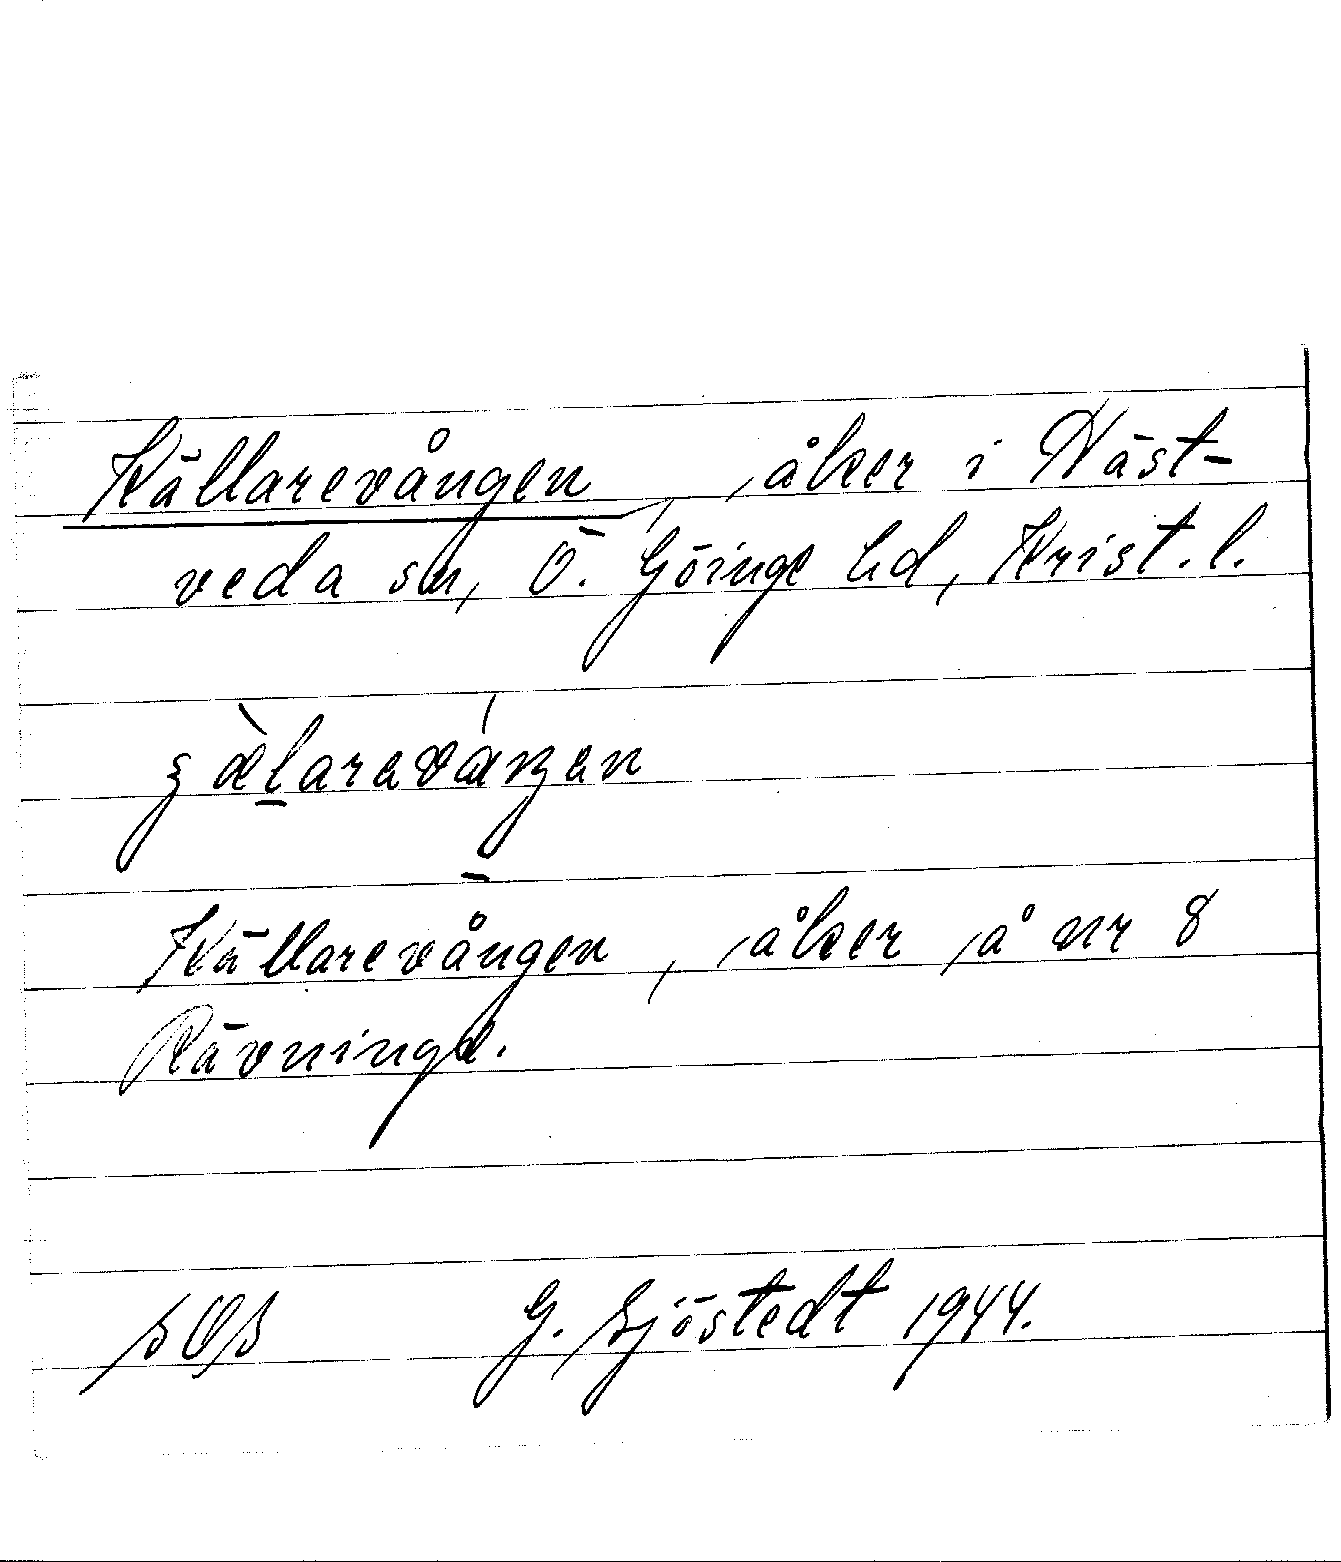 Källarevången, åker i Häst-
veda sn, Ö. Göinge hd, Krist. l.
Källarevången, åker å nr 8
Rävninge.
G. Sjöstedt 1944.